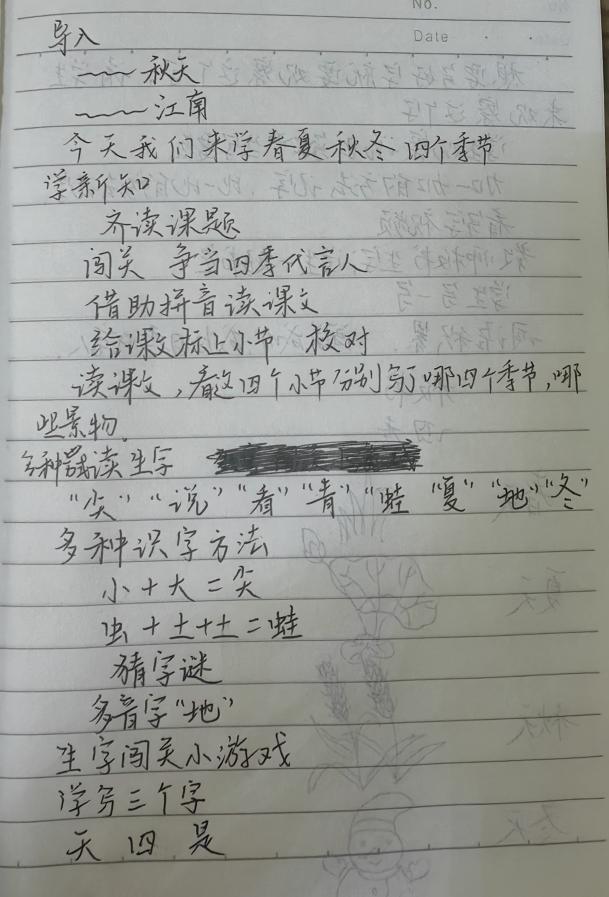 No.
Date
导入
~~~秋天
~~~江南
今天我们来学春夏秋冬四个季节
学新知
齐读课题
闯关 争当四季代言人
借助拼音读课文
给课文标上小节 校对
读课文,看这四个小节分别写了哪四个季节,哪
些景物。
多种 读生字
“尖”“说”“看”“青”“蛙“夏”“地”“冬”
多种识字方法
小+大=尖
虫+土+土=蛙
猜字谜
多音字“地”
生字闯关小游戏
学写三个字
天 四 是